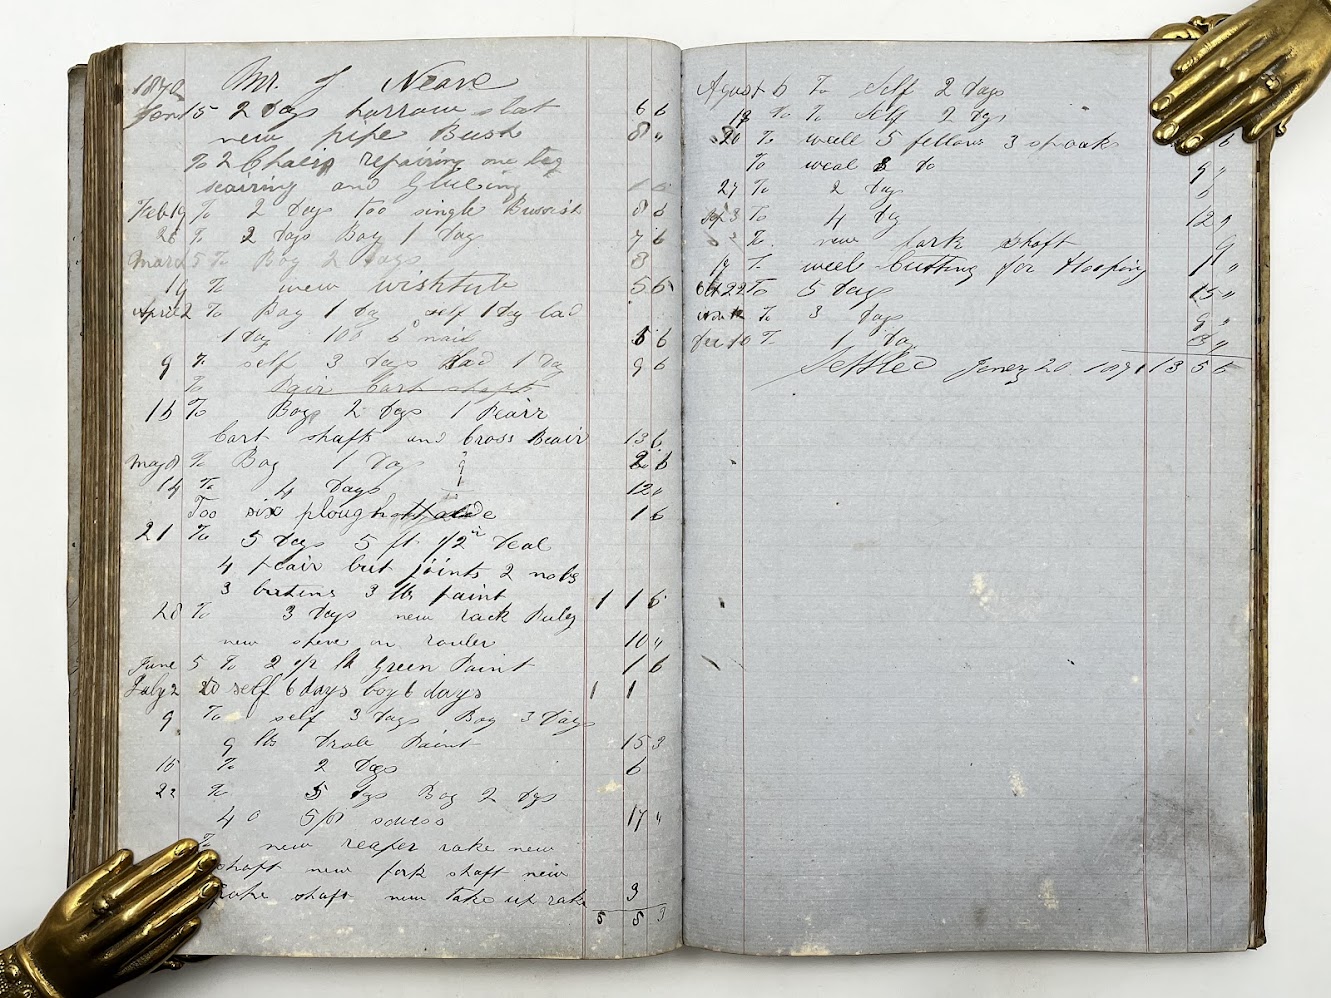 1870 Mr. J Neave
Jan 15 2 days harrow slat 6 6
new pipe Bush 8 "
To 2 Chairs repairing one leg
searing and Glueing 1 6
Feb 19 To 2 days too single 8 6
26 To 2 days Boy 1 day 7 6
March 5 To Boy 2 days 3
19 To new 5 6
April 2 To Boy 1 day self 1 day lad
1 day 100 6d nail 6
9 To self 3 days lad 1 day 9 6
To Pair Cart shafts
16 To Boy 2 dys 1 Peair
Cart shafts and Cross Beair 13 6
May 8 To Boy 1 day 2 6
14 To 4 days 12 "
Too six plough 1 6
21 To 5 days 5 ft 1/2 in deal
4 peair but joints 2 nobs
3 butens 3 lb paint 1 1 6
28 To 3 days new rack
new on 10 "
June 5 To 2 1/2 lb Green Paint 1 6
July 2 to self 6 days boy 6 days 1 1
9 To self 3 days Boy 3 days
9 lb Paint 15 3
16 To 2 days 6
22 To 5 dys Boy 2 dys
4 17 "
To new reaper rake new
shaft new fork shaft new
rake shaft new take up rake 3
8 3
Agost 6 To Self 2 days
To Self 2 dys
20 To weell 5 fellows 3 spoaks 6
To weal 8 do
27 To 2 days
3 To 4 dy 12
To new fork shaft 9
17 To weel Cutting for Hooping 1 "
Oct 22 To 5 days 15 "
To 3 days 9 "
Dec 10 To 1 day 3 "
Settled Janey 20 1871 13 5 6